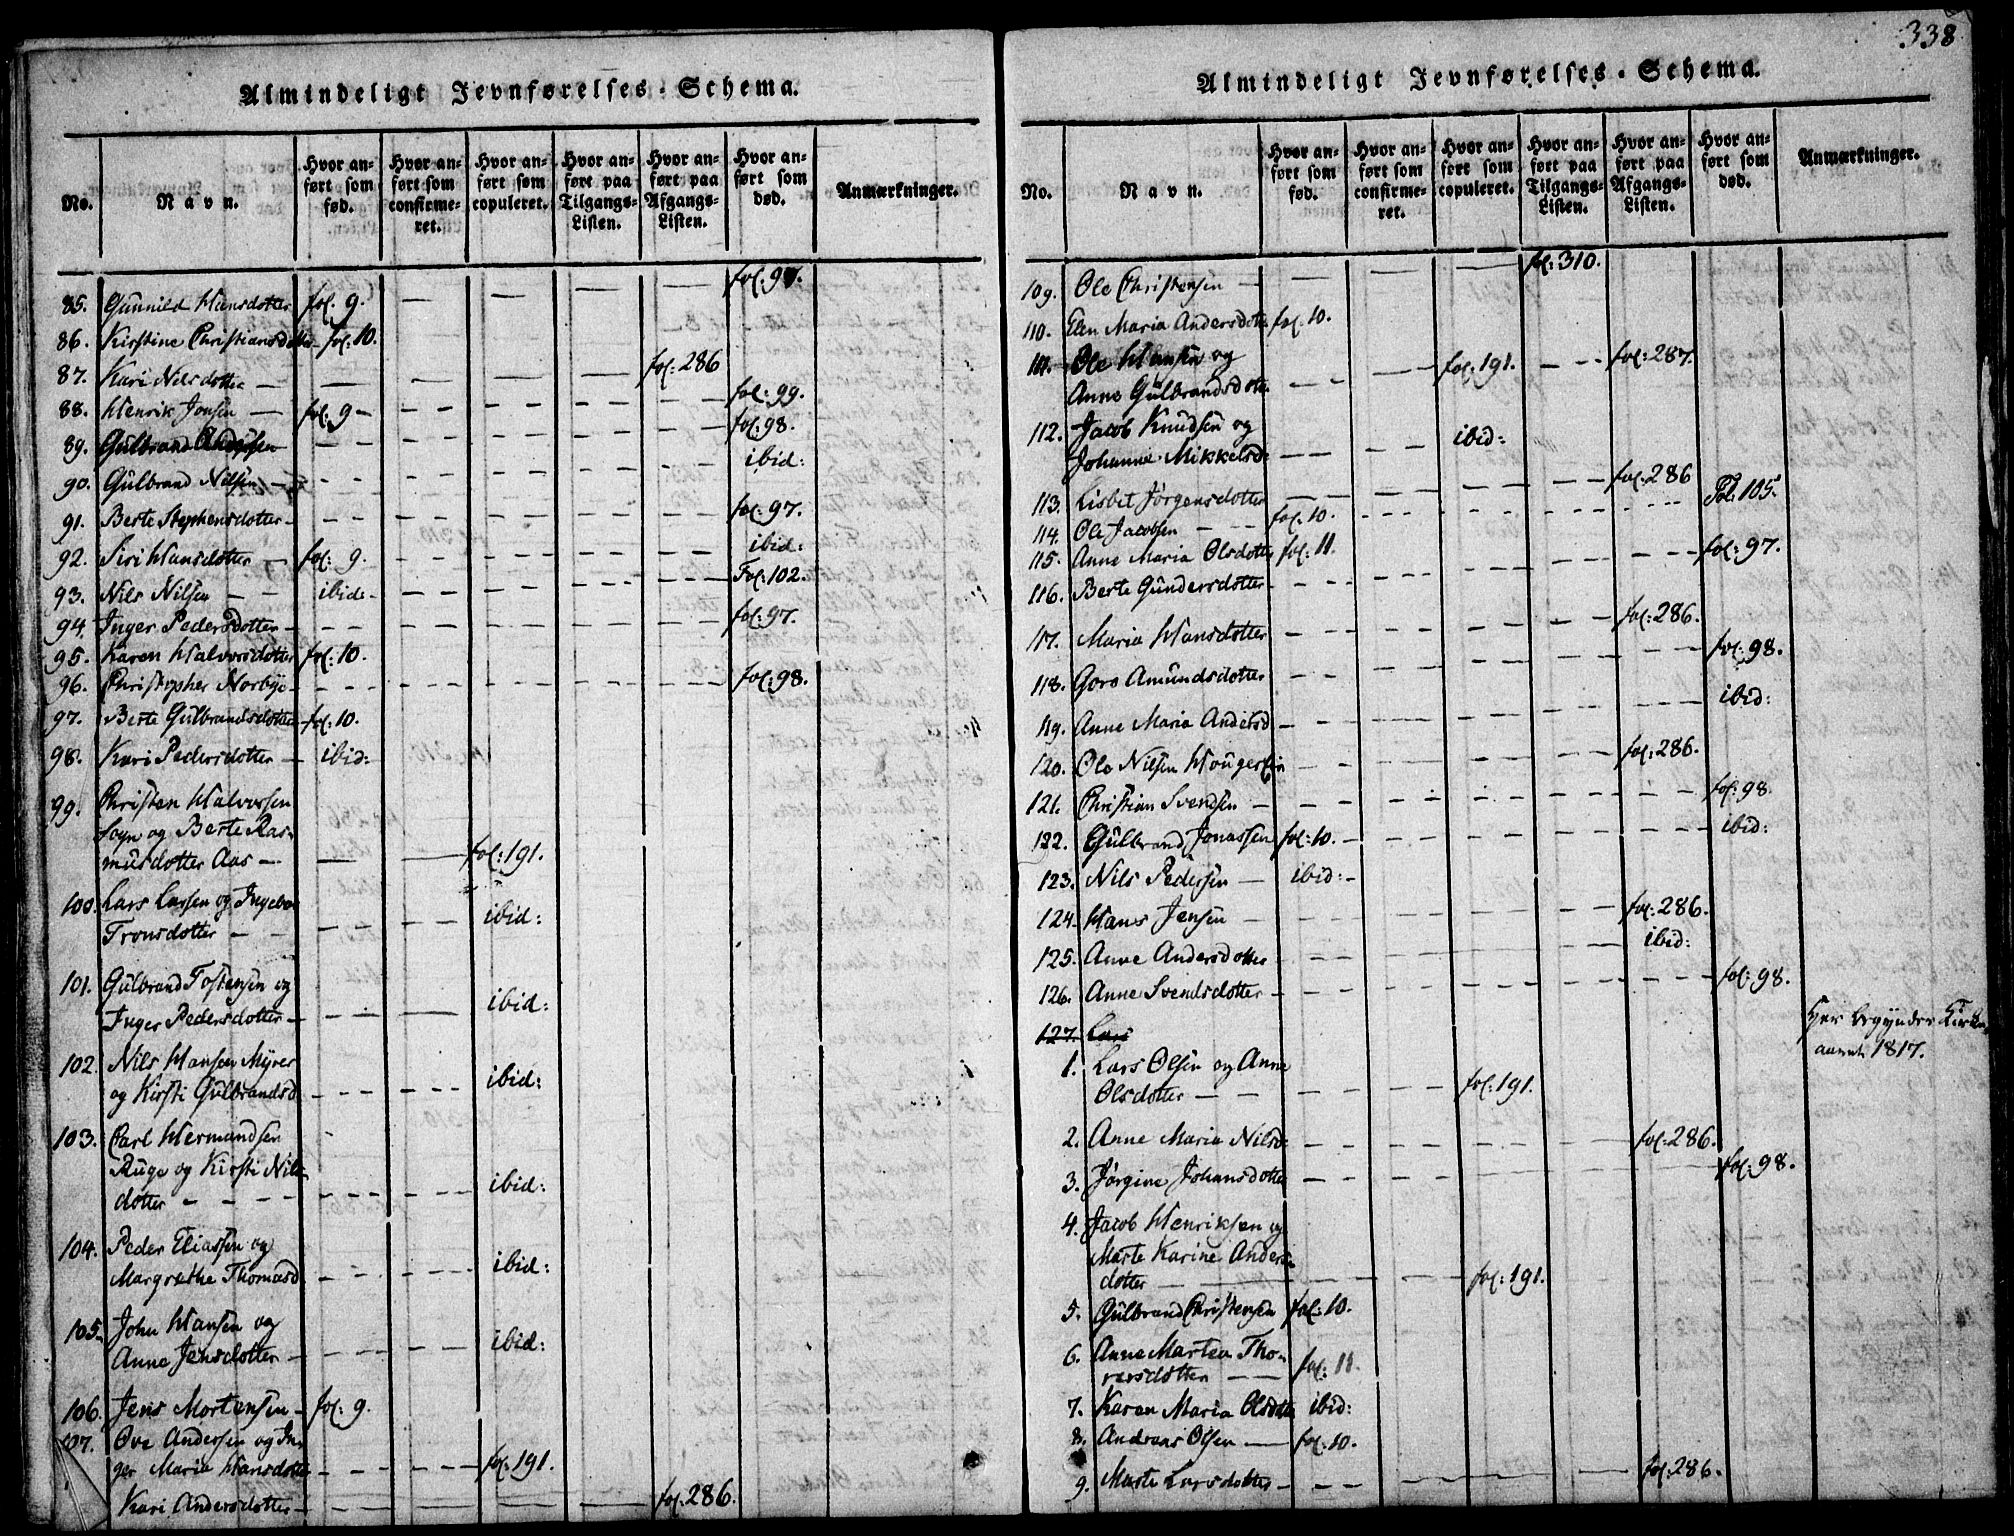 Almindeligt Jevnførelses-Schema.
No.
Navn.
Hvor an-
ført som
fød.
Hvor an-
ført som
confirme-
ret.
Hvor an-
ført som
copuleret.
Hvor an-
ført paa
Tilgangs-
Listen.
Hvor an-
ført paa
Afgangs-
Listen.
Hvor an-
ført som
død.
Anmærkninger.
85. Gunnild Hansdotter fol: 9. — — — — fol: 97.
86. Kirstine Christiansdotter fol: 10.
87. Kari Nilsdotter — — — — — fol: 286
88. Henrik Jonsen — fol: 9 — — — — — fol: 99.
89. Gulbrand — — — — — fol: 98.
90. Gulbrand Nilsen — — — — — ibid:
91. Berte Stephensdotter — — — — — fol: 97.
92. Siri Hansdotter — fol: 9. — — — — ibid:
93. Nils Nilsen — — ibid: — — — — — Fol: 102.
94. Inger Pedersdotter — — — — — fol: 97.
95. Karen Halvorsdotter fol: 10.
96. Christopher Norbye — — — — — fol: 98.
97. Berte Gulbrandsdotter fol: 10.
98. Kari Pedersdotter — ibid:
99. Christen Halvorsen
Sogn og Berte Ras-
musdotter Aas — — — fol: 191.
100. Lars Larsen og Ingebor
Tronsdotter — — — — ibid:
101. Gulbrand Tostensen og
Inger Pedersdotter — — — ibid:
102. Nils Hansen Myrer
og Kirsti Gulbrandsd — — — ibid:
103. Carl Hermandsen
Ruge og Kirsti Nils-
dotter — — — — ibid:
104. Peder Eliassen og
Margrethe Thomasd — — — ibid:
105. John Hansen og
Anne Jensdotter — — — ibid:
106. Jens Mortensen — fol: 9.
107. Ove Andersen og In-
ger Maria Hansdotter — — — fol: 191.
Kari Andersdotter — — — — fol: 286.
338
Almindeligt Jevnførelses-Schema.
No.
Navn.
Hvor an-
ført som
fød.
Hvor an-
ført som
confirme-
ret.
Hvor an-
ført som
copuleret.
Hvor an-
ført paa
Tilgangs-
Listen.
Hvor an-
ført paa
Afgangs-
Listen.
Hvor an-
ført som
død.
Anmærkninger.
109. Ole Christensen — — — — fol: 310.
110. Elen Maria Andersdotter fol: 10.
111. Ole Hansen og fol: 191. — — fol: 287.
Anne Gulbrandsdotter — — —
112. Jacob Knudsen og ibid:
Johanne Mikkelsd: — — —
113. Lisbet Jørgensdotter — — — — fol: 286
114. Ole Jacobsen — — fol: 10. — — — — Fol: 105.
115. Anne Maria Olsdotter fol: 11.
116. Berte Gundersdotter — — — — — fol: 97.
117. Maria Hansdotter — — — — fol: 286.
118. Goro Amundsdotter — — — — — fol: 98.
119. Anne Maria Andersd — — — — — ibid:
120. Ole Nilsen — — — — fol: 286.
121. Christian Svendsen — — — — — fol: 98.
122. Gulbrand Jonassen fol: 10. — — — — ibid:
123. Nils Pedersen — ibid: —
124. Hans Jensen — — — — — fol: 286.
125. Anne Andersdotter — — — — ibid:
126. Anne Svendsdotter — — — — — fol: 98.
127. Lars
Her begynder Kirke-
aaret 1817.
1. Lars Olsen og Anne
Olsdotter — — — — fol: 191.
2. Anne Maria Nilsd: — — — — fol: 286.
3. Jørgine Johansdotter — — — — — fol: 98.
4. Jacob Henriksen og
Marte Karine Anders-
dotter — — — — fol: 191.
5. Gulbrand Christensen fol: 10.
6. Anne Martea Tho-
rersdotter — — fol: 11.
7. Karen Maria Olsdotter ibid:
8. Andreas Olsen — fol: 10.
9. Marte Larsdotter — — — — fol: 286.